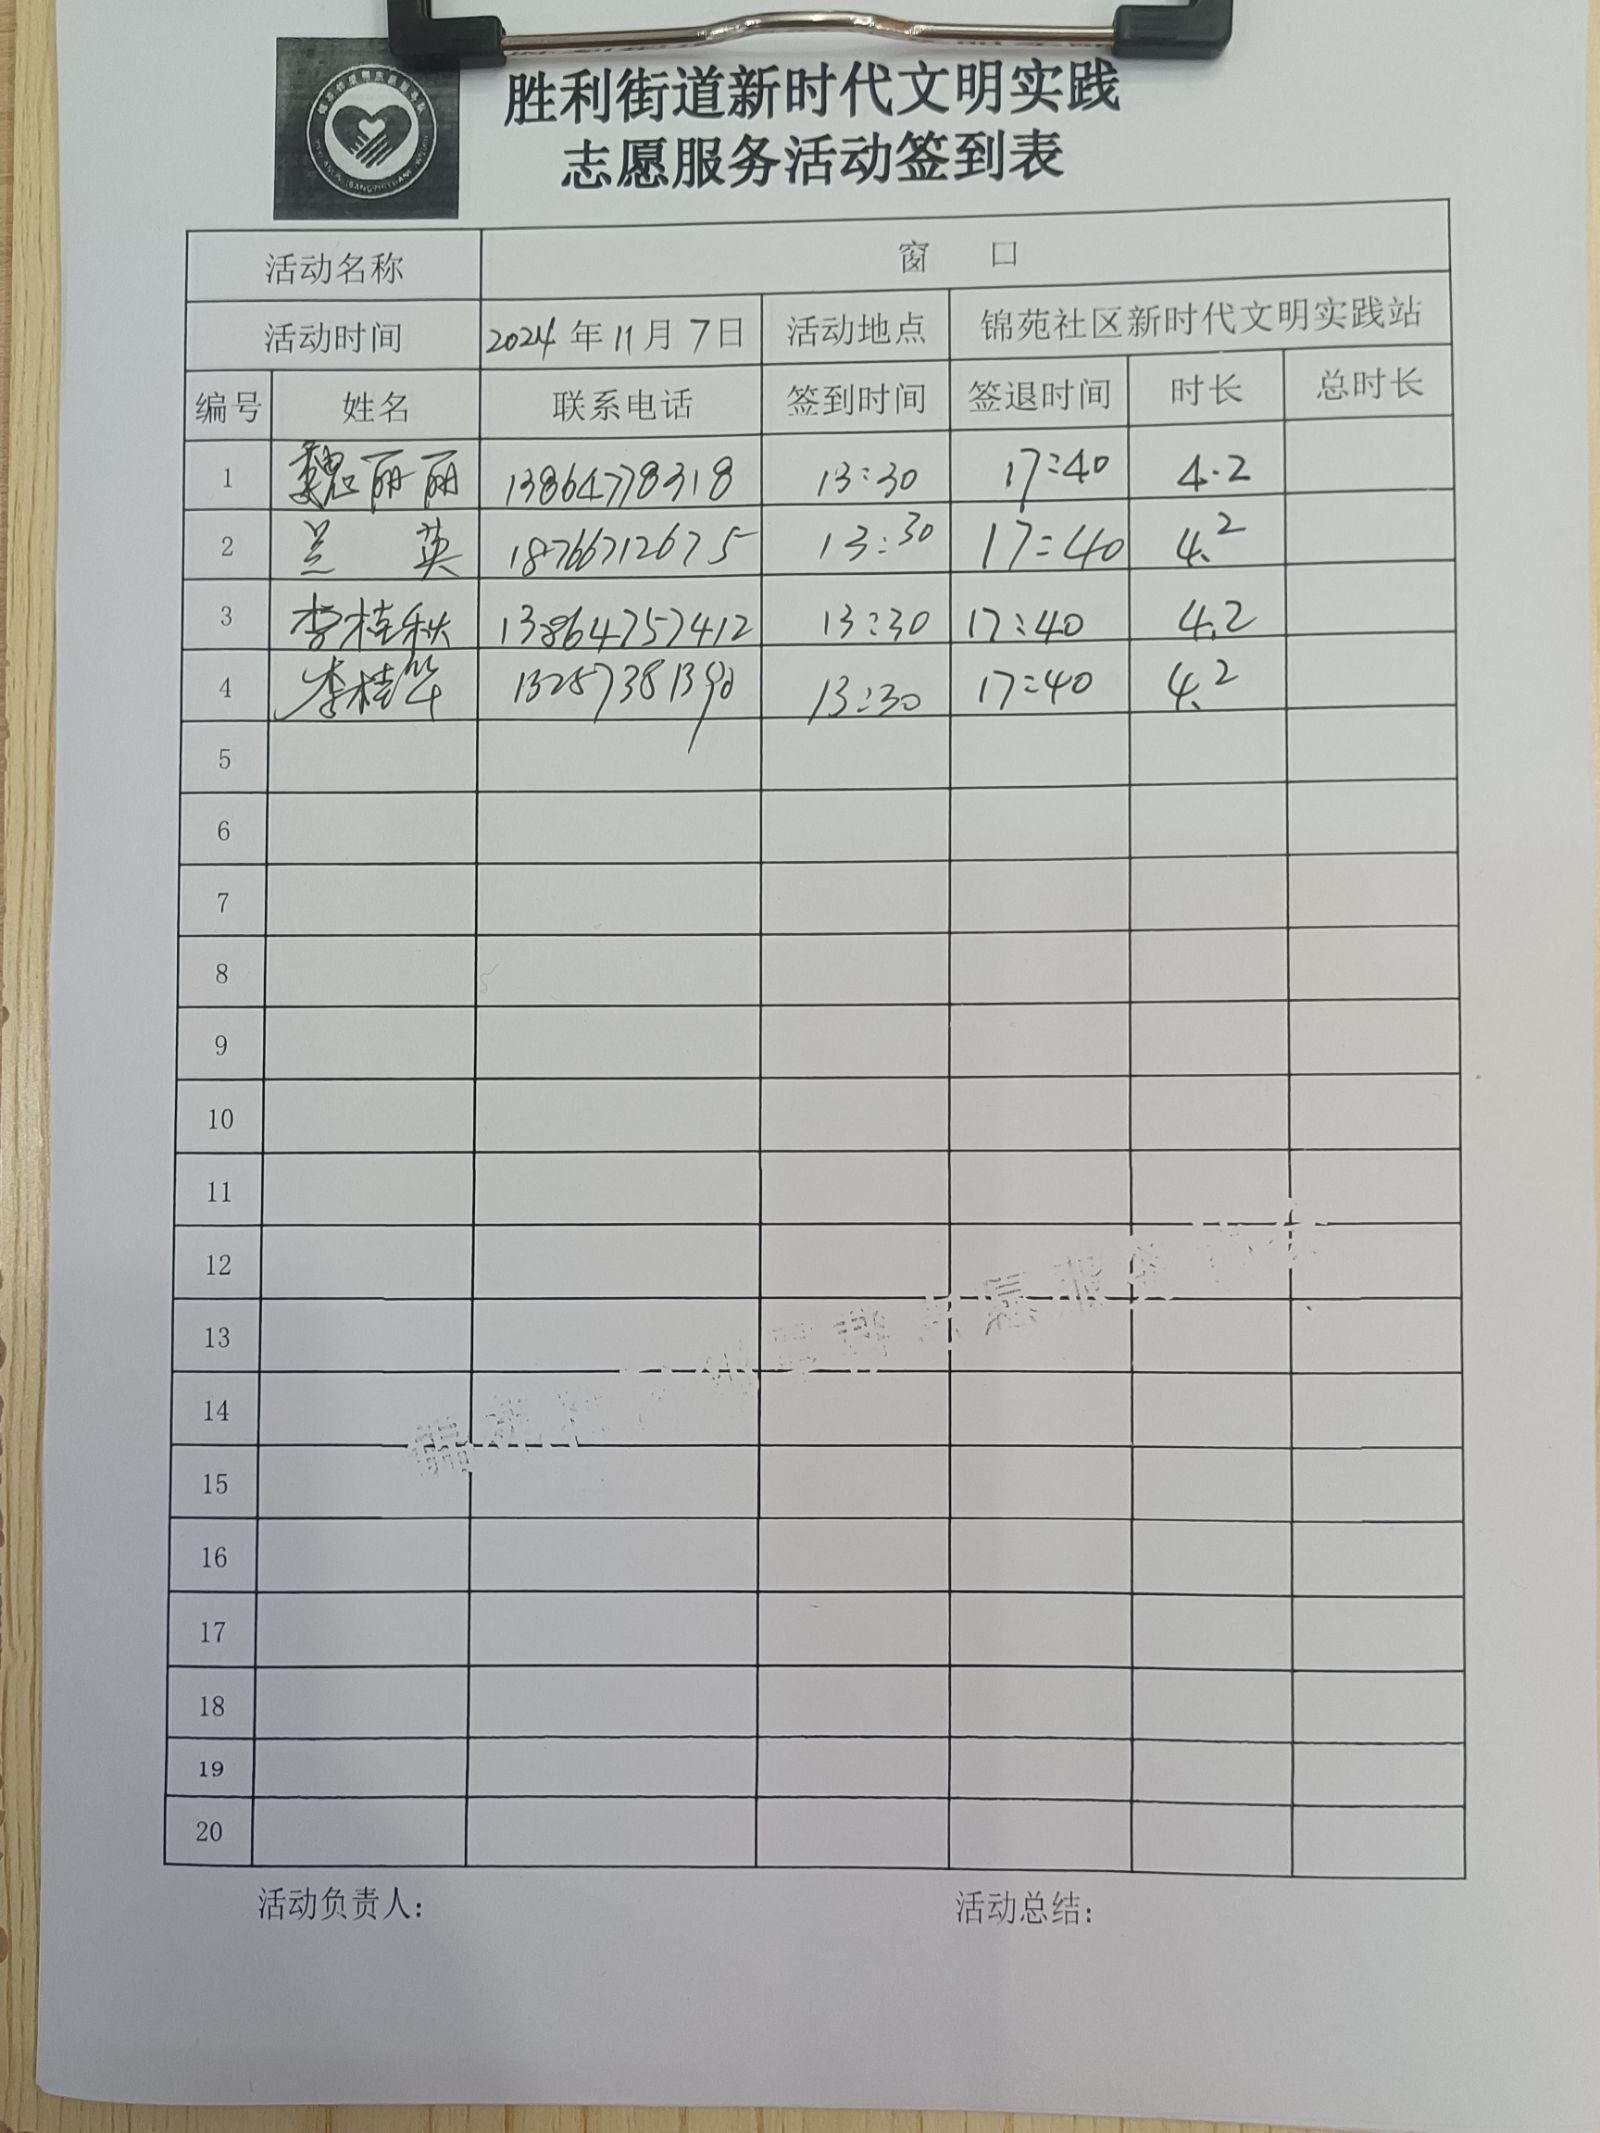 胜利街道新时代文明实践
志愿服务活动签到表
活动名称 窗 口
活动时间 2024年11月7日 活动地点 锦苑社区新时代文明实践站
编号 姓名 联系电话 签到时间 签退时间 时长 总时长
1 魏丽丽 13864778318 13:30 17:40 4.2
2 兰 英 18766712675 13:30 17:40 4.2
3 李桂秋 13864757412 13:30 17:40 4.2
4 李桂华 13:30 17:40 4.2
5
6
7
8
9
10
11
12
13
14
15
16
17
18
19
20
活动负责人: 活动总结: